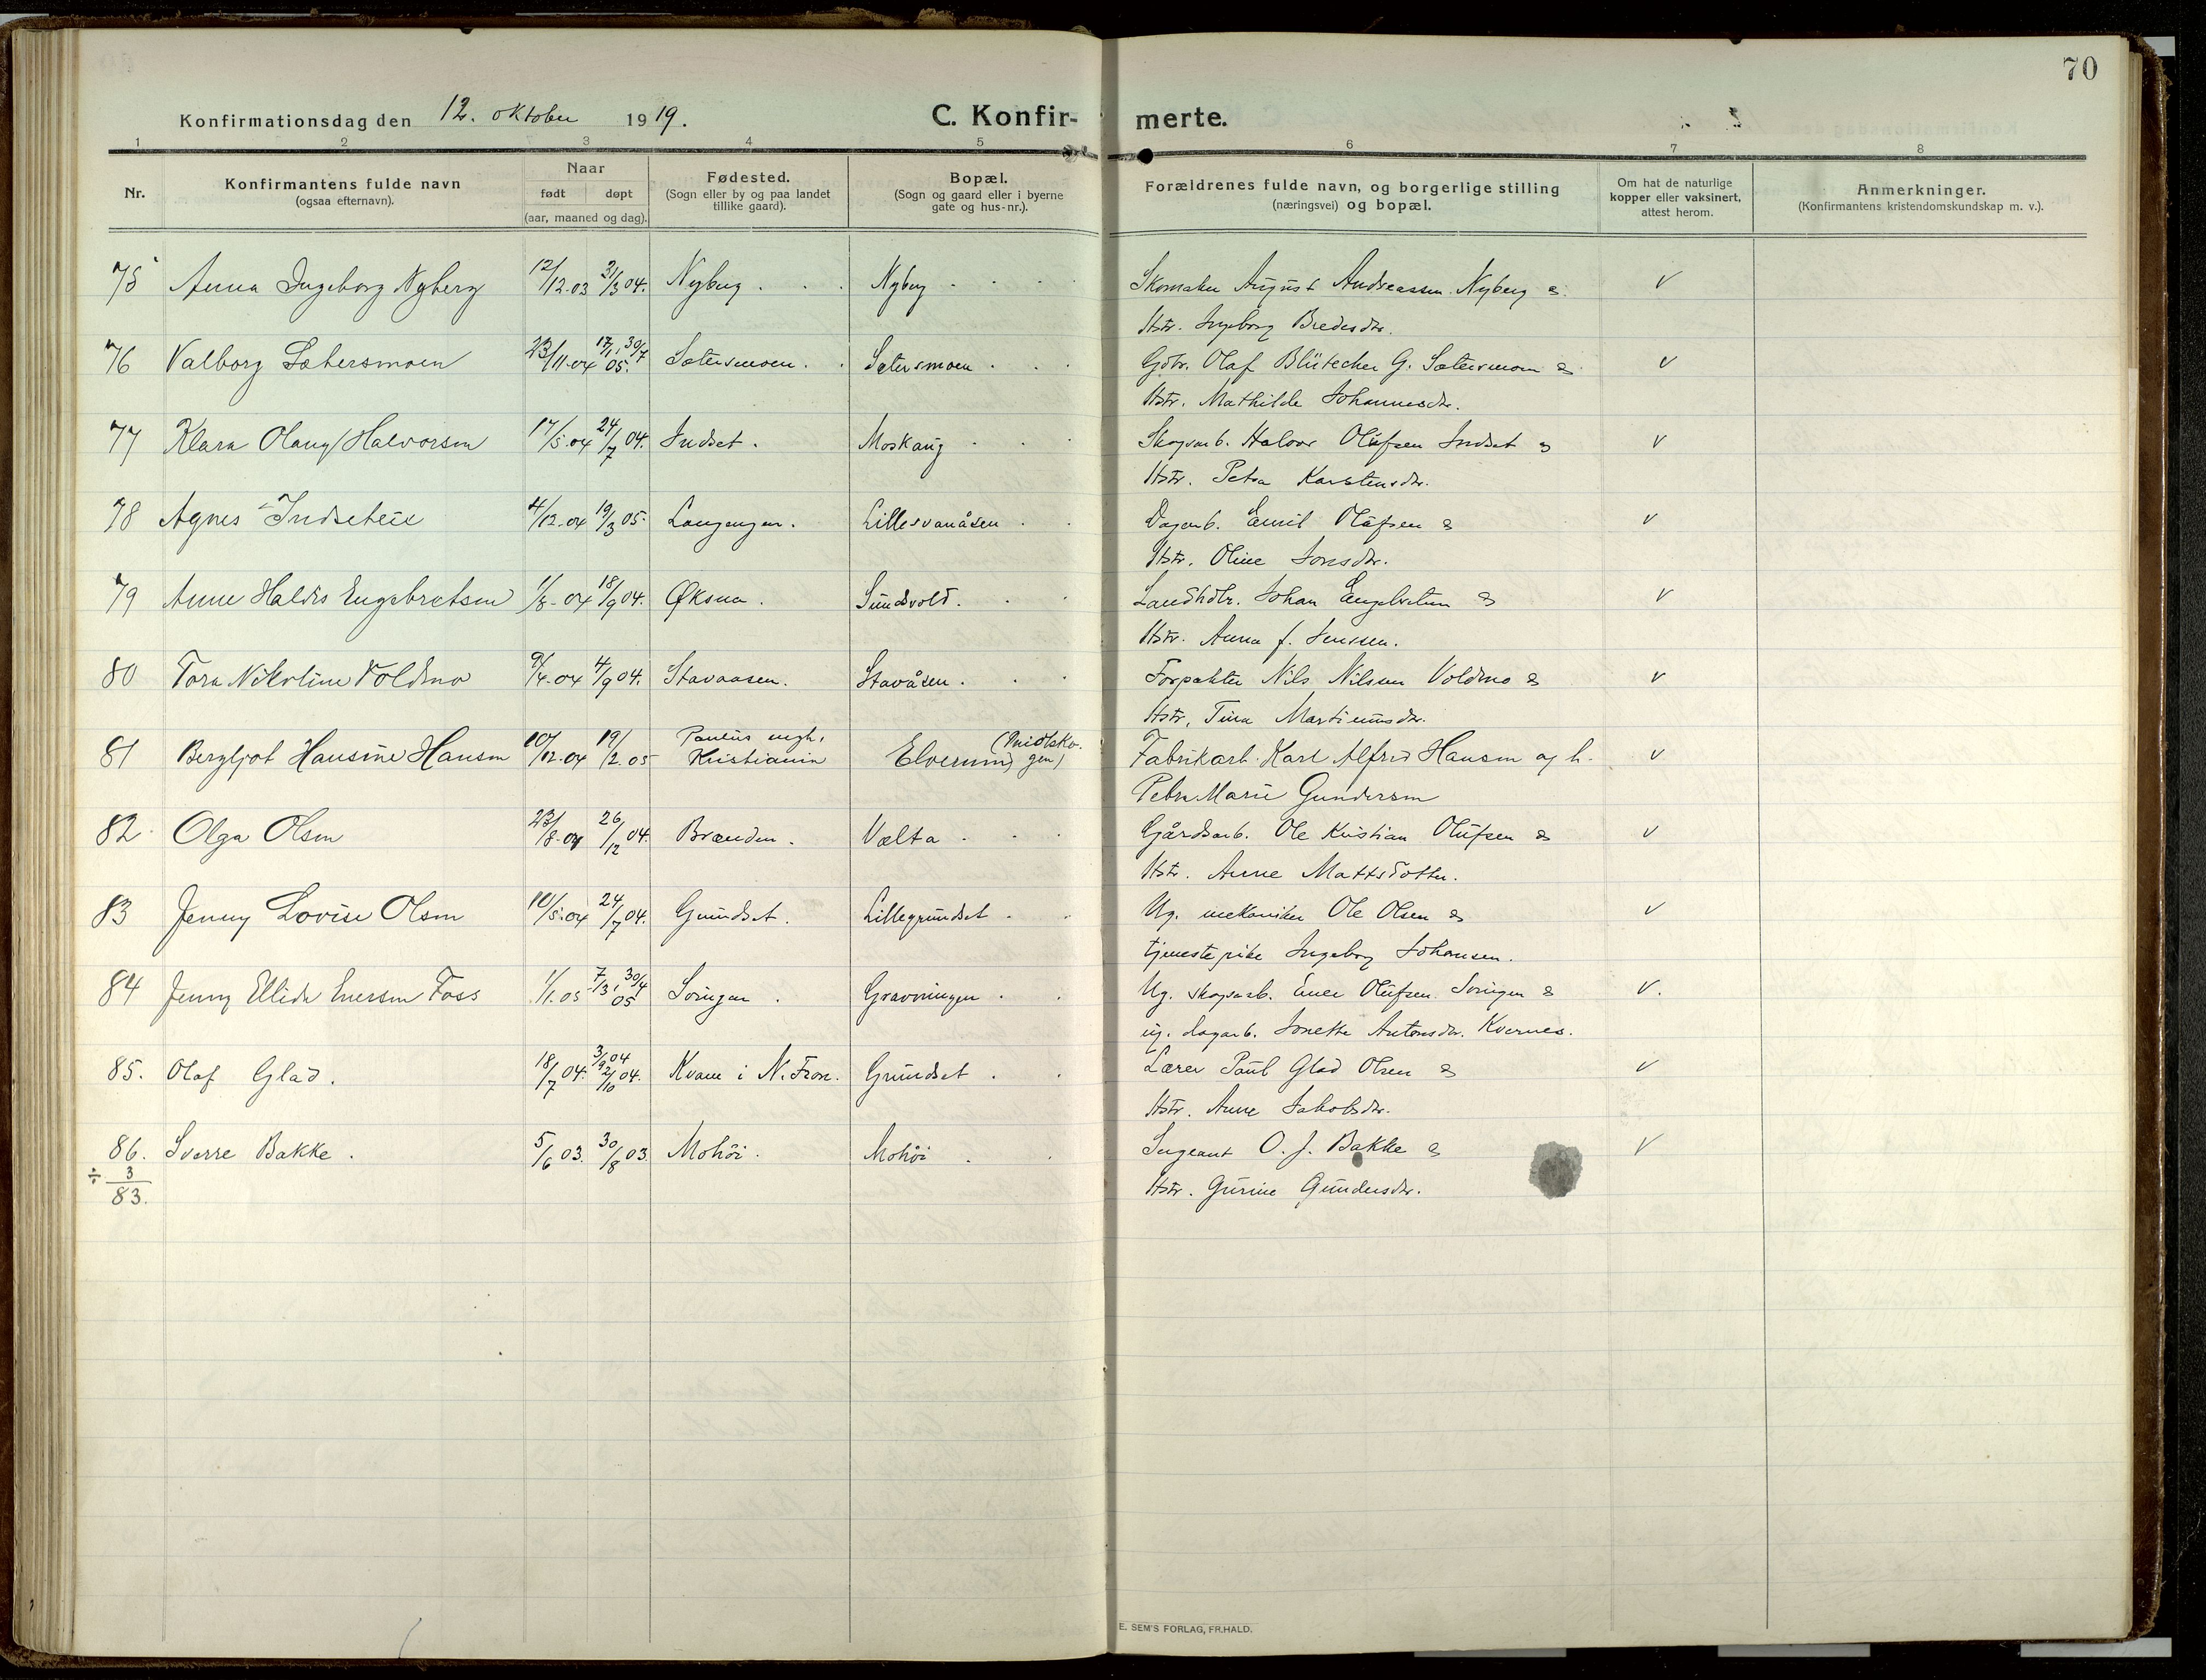 70
Konfirmationsdag den 12. oktober 1919.
C. Konfir- merte.
1 2 3 4 5 6 7 8
Nr.
Konfirmantens fulde navn
(ogsaa efternavn).
Naar
født døpt
(aar, maaned og dag).
Fødested.
(Sogn eller by og paa landet
tillike gaard).
Bopæl.
(Sogn og gaard eller i byerne
gate og hus-nr.).
Forældrenes fulde navn, og borgerlige stilling
(næringsvei) og bopæl.
Om hat de naturlige
kopper eller vaksinert,
attest herom.
Anmerkninger.
(Konfirmantens kristendomskundskap m. v.).
75 Anna Ingeborg Nyberg 12/12.03 31/3 04. Nyberg . . . Nyberg . . . . Skomaker August Andreassen Nyberg & v
Hstr. Ingeborg Bredesdtr.
76 Valborg Sætersmoen 23/11.04 17/1, 30/7 05. Sætersmoen . . Sætersmoen . . . Gdbr. Olaf Blütecher G. Sætersmoen & v
Hstr. Mathilde Johannesdtr.
77 Klara Olaug Halvorsen 17/5.04 24/7 04. Indset . Moskaug . . . Skogsarb. Halvor Olufsen Indset & v
Hstr. Petra Karstensdtr.
78 Agnes Indseteie 4/12.04 19/3 05. Langengen . Lillesvanåsen . . Dagarb. Emil Olafsen & v
Hstr. Oline Jonsdtr.
79 Anne Haldis Engebretsen 1/8-04 18/9 04. Øksna . Sundsvold . . . Landhdlr. Johan Engebretsen & v
Hstr. Anna f. Jenssen.
80 Tora Nikoline Voldmo 9/4.04 4/9 04. Stavaasen . Stavåsen . . . Forpakter Nils Nilsen Voldmo & v
Hstr. Tina Martinusdtr.
81 Bergljot Hansine Hansen 10/12.04 19/2.05 Paulus mgh. Kristiania Elverum ( gen) Fabrikarb. Karl Alfred Hansen og h. v
Petra Marie Gundersen
82 Olga Olsen 23/8.04 26/12 04. Brænden . Vælta . . . Gårdsarb. Ole Kristian Olufsen & v
Hstr. Anne Mattsdotter.
83 Jenny Lovise Olsen 10/5.04 24/7 04. Grundset . Lillegrundset . . Ug. mekaniker Ole Olsen & v
tjenestepike Ingeborg Johansen.
84 Jenny Ellida Enersen Foss 1/1.05 7/3, 30/4 05 Svingen . Gravningen . . Ug. skogsarb. Ener Olufsen Svingen & v.
ug. dagarb. Jonette Antonsdtr. Kvernes.
85. Olaf Glad . 18/7 04. 3/9 04 2/10 04. Kvam i N. Fron. Grundset . . Lærer Paul Glad Olsen & v
Hstr. Anne Jakobsdtr.
86. Sverre Bakke . 5/6 03. 30/8 03. Mohöi . Mohöi . . Sergeant O. J. Bakke & v
÷ 3
83.
Hstr. Gurine Gundersdtr.
E. SEM'S FORLAG, FR.HALD.